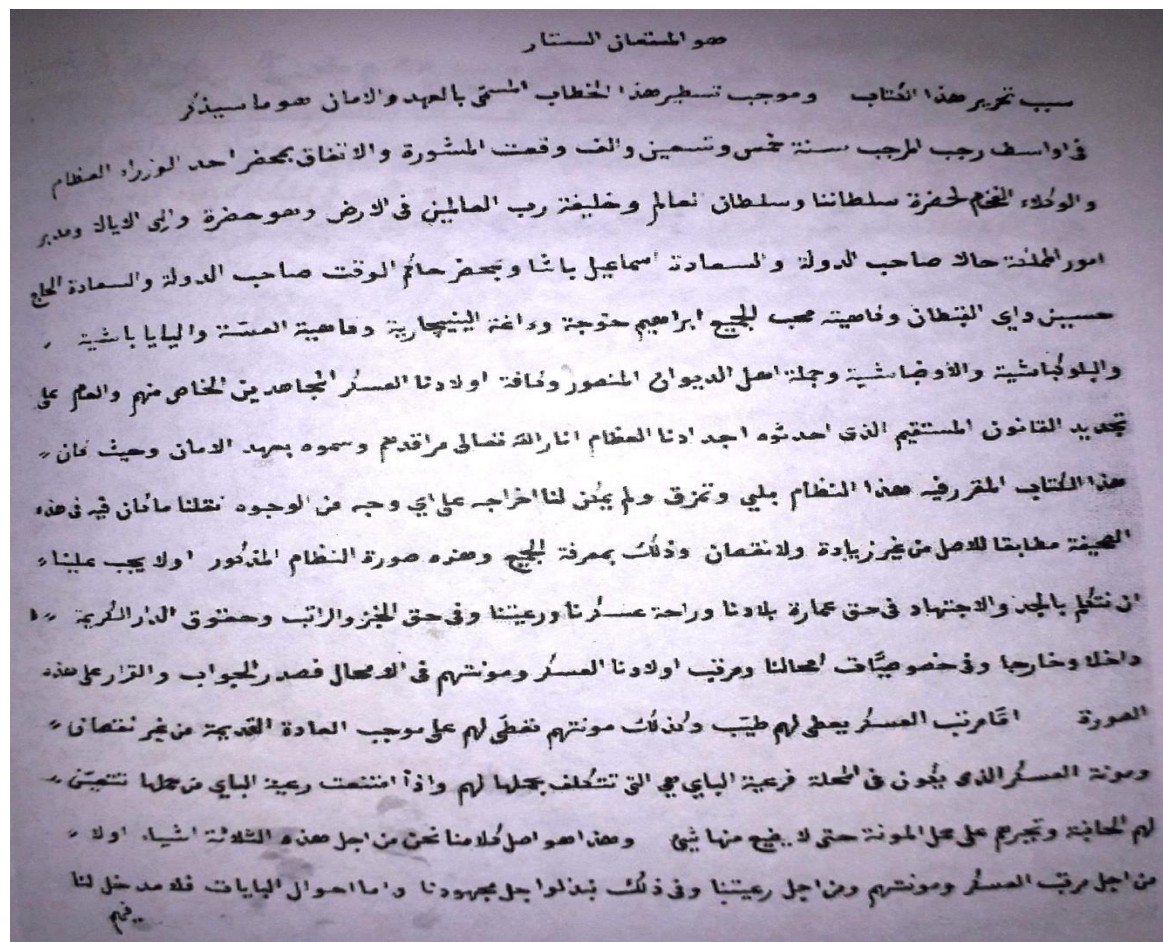 هو المستعان الستار
سبب تحرير هذا الكتاب وموجب تسطير هذا الخطاب المسمى بالعهد والامان هو ما سيذكر
فى اواسط رجب المرجب سنة خمس وتسعين والف وقعت المشورة والاتفاق بمحضر احد الوزراء العظام
والوكلاء الفخام لحضرة سلطاننا وسلطان العالم وخليفة رب العالمين فى الارض وهو حضرة والى الايالة ومدبر
امور المملكة حالا صاحب الدولة والسعادة اسماعيل باشا وبمحضر حاكم الوقت صاحب الدولة والسعادة الحاج
حسين داى القبطان وكاهيته محب الجميع ابراهيم خوجة وءاغة الينيجارية وكاهية العسة واليايا باشية
والبلوكباشية والأوضاباشية وجملة اهل الديوان المنصور وكافة اولادنا العسكر المجاهدين الخاص منهم والعام على
تجديد القانون المستقيم الذى احدثوه اجدادنا العظام انار الله تعالى مراقدهم وسموه بعهد الامان وحيث كان
هذا الكتاب المقرر فيه هذا النظام بلي وتمزق ولم يمكن لنا اخراجه على اي وجه من الوجوه نقلنا ما كان فيه فى هذه
الصحيفة مطابقا للاصل من غير زيادة ولا نقصان وذلك بمعرفة الجميع وهذه صورة النظام المذكور اولا يجب علينا
ان نتكلم بالجد والاجتهاد فى حق عمارة بلادنا وراحة عسكرنا ورعيتنا وفى حق الخبز والراتب وحقوق الدار الكريمة
داخلا وخارجا وفى خصوصيّات امحالنا ومرتب اولادنا العسكر ومونتهم فى الامحال فصدر الجواب والقرار على هذه
الصورة امّا مرتب العسكر يعطى لهم طيّب وكذلك مونتهم تعطى لهم على موجب العادة القديمة من غير نقصان
ومونة العسكر الذى يكون فى المحلة فرعية الباي هي التى تتكلف بحملها لهم واذا امتنعت رعية الباي من حملها تتعيّن
لهم الحانبة وتجبرهم على حمل المونة حتى لا يضيع منها شئ وهذا هو اصل كلامنا نحن من اجل هذه الثلاثة اشياء اولا
من اجل مرتب العسكر ومونتهم ومن اجل رعيتنا وفى ذلك نبذلوا جل مجهودنا واما احوال البايات فلا مدخل لنا
فيهم